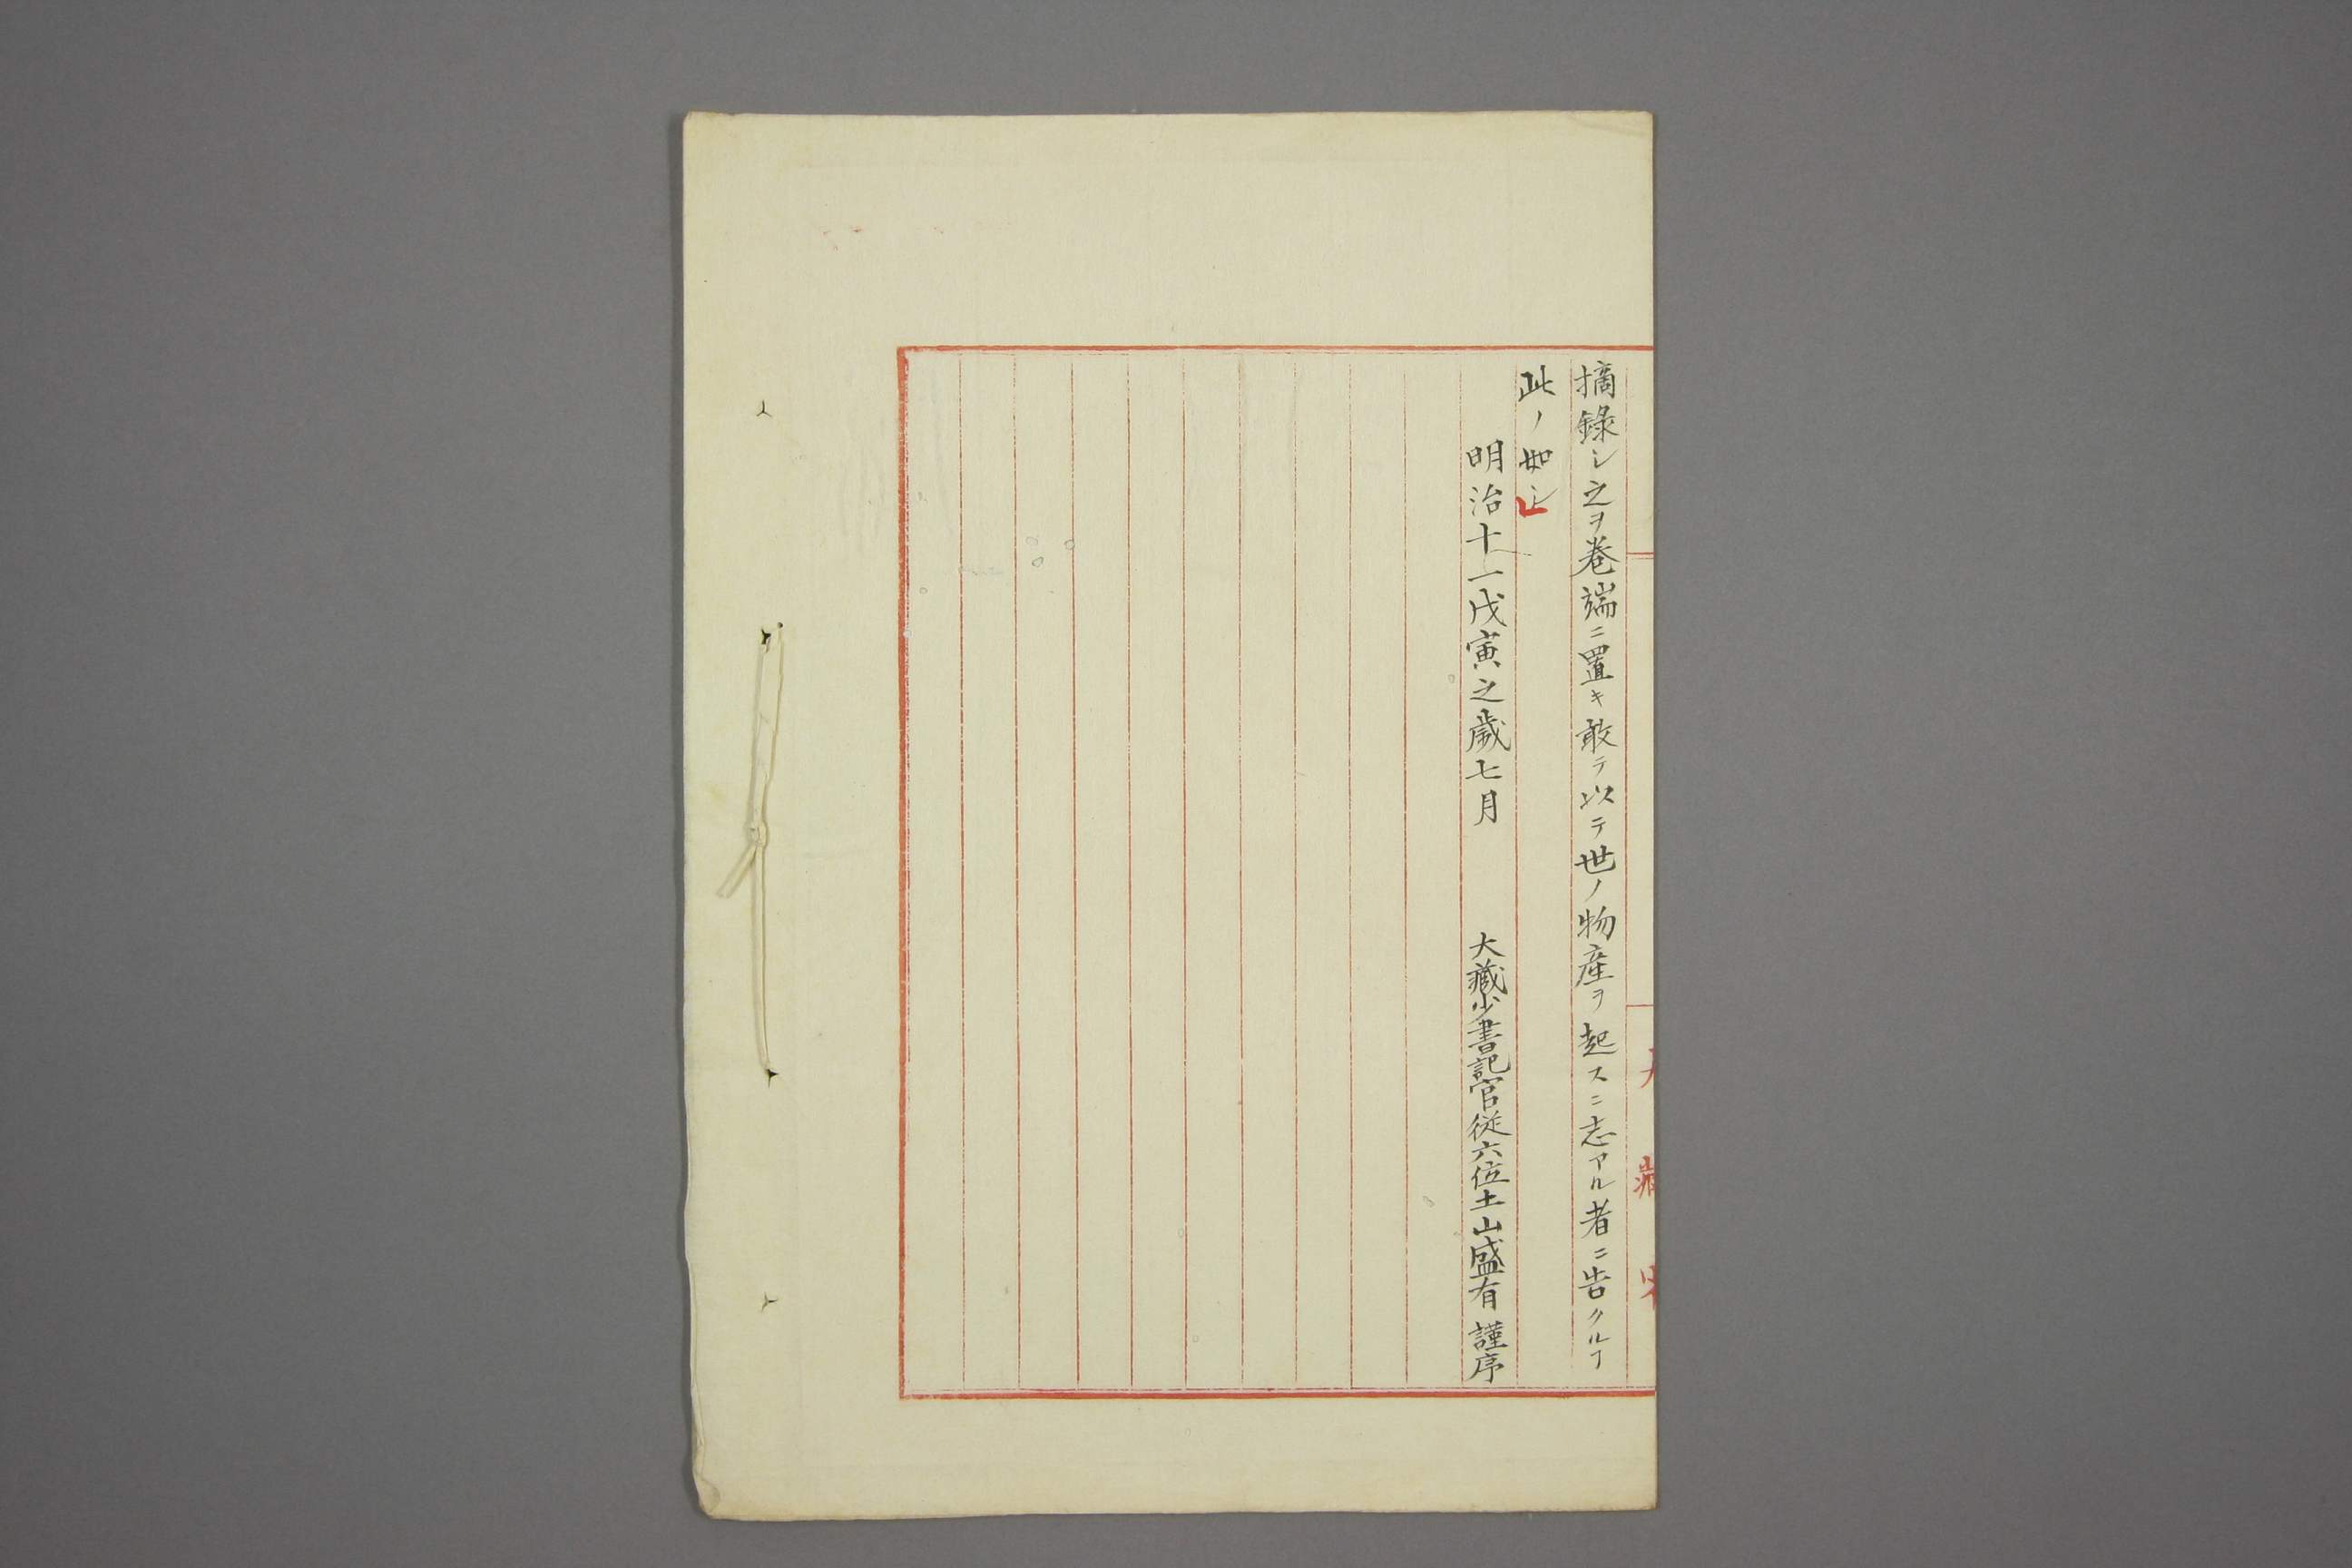 摘錄シ之ヲ巻端ニ置キ敢テ以テ世ノ物産ヲ起スニ志アル者ニ告クルヿ
此ノ如シ
明治十一戊寅之歲七月　大藏少書記官從六位土山盛有 謹序